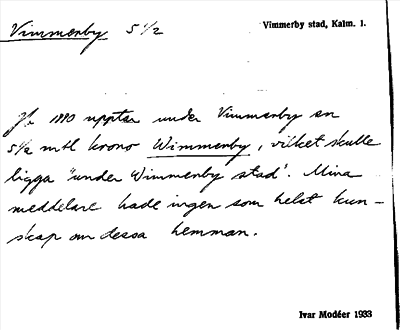 Vimmerby 5 1/2
Vimmerby stad, Kalm. l.
Jb 1880 upptar under Vimmerby en
5 1/2 mtl krono Wimmerby, vilket skulle
ligga "under Wimmerby stad". Mina
meddelare hade ingen som helst kun-
skap om dessa hemman.
Ivar Modéer 1933